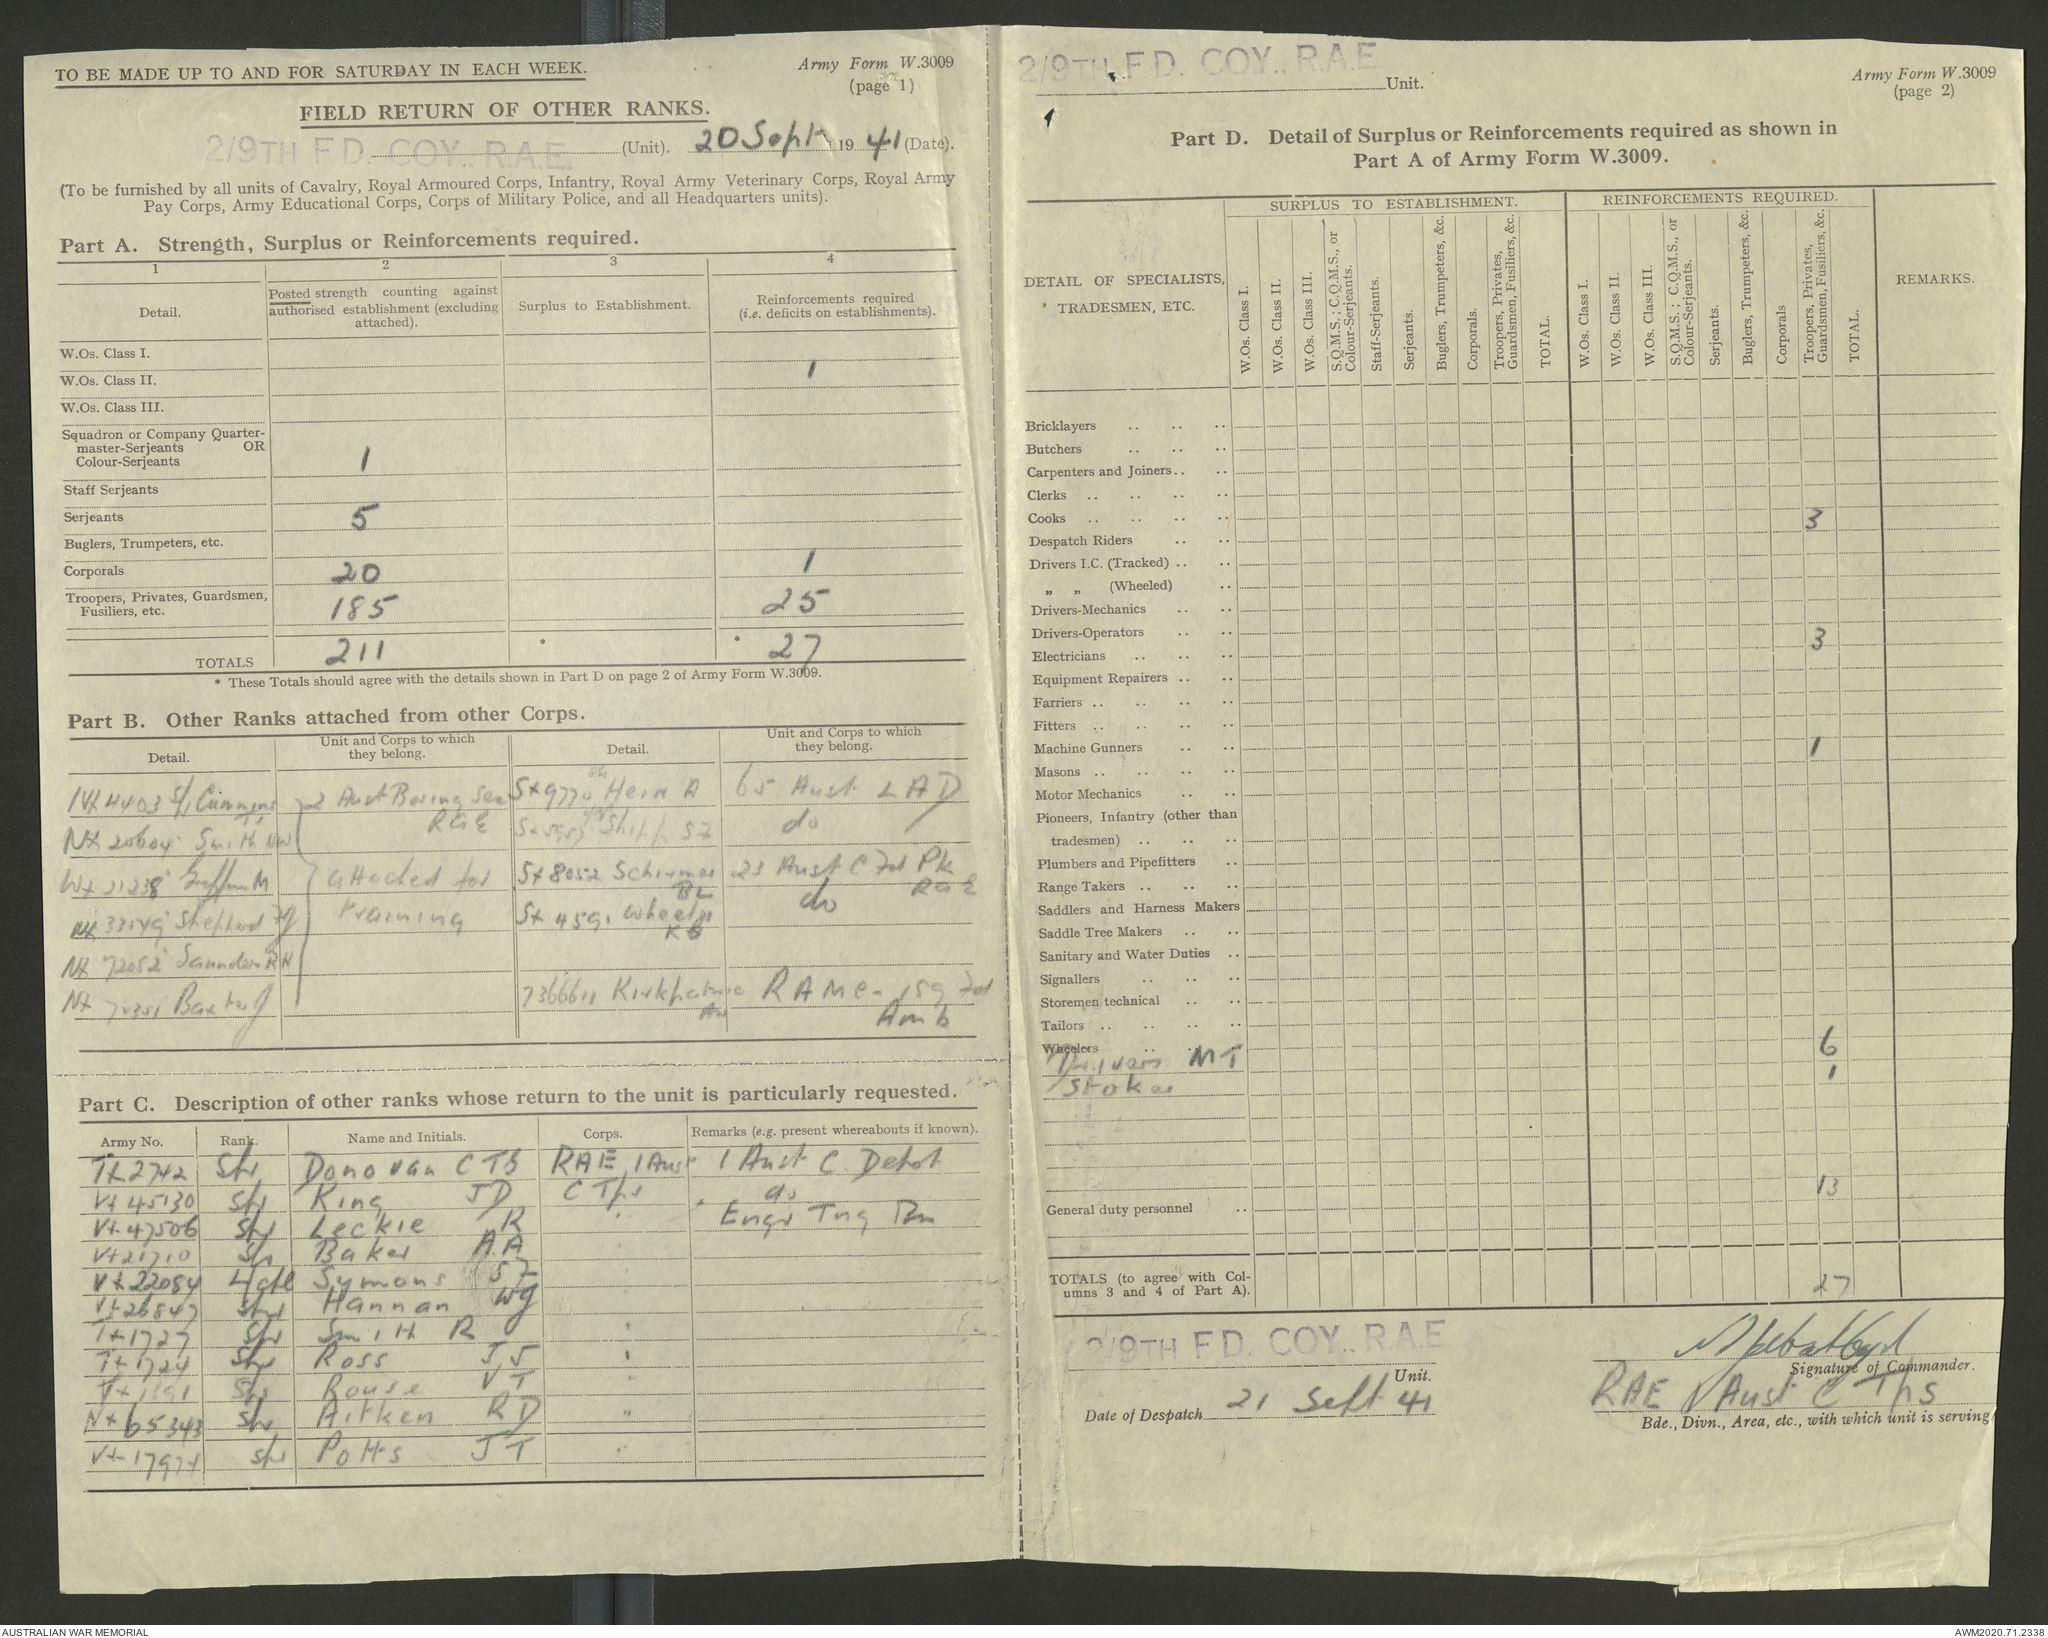 TO BE MADE UP TO AND FOR SATURDAY IN EACH WEEK.
Army Form W.3009
(page 1)
FIELD RETURN OF OTHER RANKS.
2/9TH FD. COY., R.A.E. (Unit). 20 Sept 1941 (Date).
(To be furnished by all units of Cavalry, Royal Armoured Corps, Infantry, Royal Army Veterinary Corps, Royal Army
Pay Corps, Army Educational Corps, Corps of Military Police, and all Headquarters units).
Part A. Strength, Surplus or Reinforcements required.
1 2 3 4
Detail.
Posted strength counting against
authorised establishment (excluding
attached).
Surplus to Establishment.
Reinforcements required
(i.e. deficits on establishments).
W.Os. Class I.
W.Os. Class II. 1
W.Os. Class III.
Squadron or Company Quarter-
master-Serjeants OR
Colour-Serjeants 1
Staff Serjeants
Serjeants 5
Buglers, Trumpeters, etc.
Corporals 20 1
Troopers, Privates, Guardsmen,
Fusiliers, etc. 185 25
TOTALS 211 * * 27
* These Totals should agree with the details shown in Part D on page 2 of Army Form W.3009.
Part B. Other Ranks attached from other Corps.
Detail.
Unit and Corps to which
they belong.
Detail.
Unit and Corps to which
they belong.
2 Aust Boring Sec
RAE
Hein A 65 Aust LAD
Smith
do
attached for
training
Sx 8052 Schirmer 23 Aust C Fd Pk
RAE
Shepherd
do
Saunders RH
Baxter J
7366611 Kirkpatrick RAMC
Amb
Part C. Description of other ranks whose return to the unit is particularly requested.
Army No. Rank. Name and Initials. Corps. Remarks (e.g. present whereabouts if known).
Tx2742 Spr Donovan CTS RAE 1 Aust 1 Aust C. Depot
Vx45130 Spr King JD C Tps do
Vx47506 Spr Leckie R " Engr Tng Bn
Vx21710 Spr Baker AA
Vx22054 L/Cpl Symons SF
Vx26847 Spr Hannan WG
Tx1727 Spr Smith R "
Tx1724 Spr Ross JJ "
Spr Rouse VT "
Nx65343 Spr Aitken RD "
Spr Potts JT "
2/9TH FD. COY., R.A.E. Unit.
Army Form W.3009
(page 2)
1
Part D. Detail of Surplus or Reinforcements required as shown in
Part A of Army Form W.3009.
DETAIL OF SPECIALISTS,
TRADESMEN, ETC.
SURPLUS TO ESTABLISHMENT.
W.Os. Class I.
W.Os. Class II.
W.Os. Class III.
S.Q.M.S.; C.Q.M.S., or
Colour-Serjeants.
Staff-Serjeants.
Serjeants.
Buglers, Trumpeters, &c.
Corporals.
Troopers, Privates,
Guardsmen, Fusiliers, &c.
TOTAL.
REINFORCEMENTS REQUIRED.
W.Os. Class I.
W.Os. Class II.
W.Os. Class III.
S.Q.M.S.; C.Q.M.S., or
Colour-Serjeants.
Serjeants.
Buglers, Trumpeters, &c.
Corporals
Troopers, Privates,
Guardsmen, Fusiliers, &c.
TOTAL.
REMARKS.
Bricklayers
Butchers
Carpenters and Joiners
Clerks
Cooks 3
Despatch Riders
Drivers I.C. (Tracked)
" " (Wheeled)
Drivers-Mechanics
Drivers-Operators 3
Electricians
Equipment Repairers
Farriers
Fitters
Machine Gunners 1
Masons
Motor Mechanics
Pioneers, Infantry (other than
tradesmen)
Plumbers and Pipefitters
Range Takers
Saddlers and Harness Makers
Saddle Tree Makers
Sanitary and Water Duties
Signallers
Storemen technical
Tailors
Wheelers
Drivers MT 6
Stoker 1
General duty personnel 13
TOTALS (to agree with Col-
umns 3 and 4 of Part A). 27
2/9TH FD. COY., R.A.E
Unit.
Signature of Commander.
Date of Despatch 21 Sept 41
RAE 1 Aust C Tps
Bde., Divn., Area, etc., with which unit is serving
AUSTRALIAN WAR MEMORIAL
AWM2020.71.2338